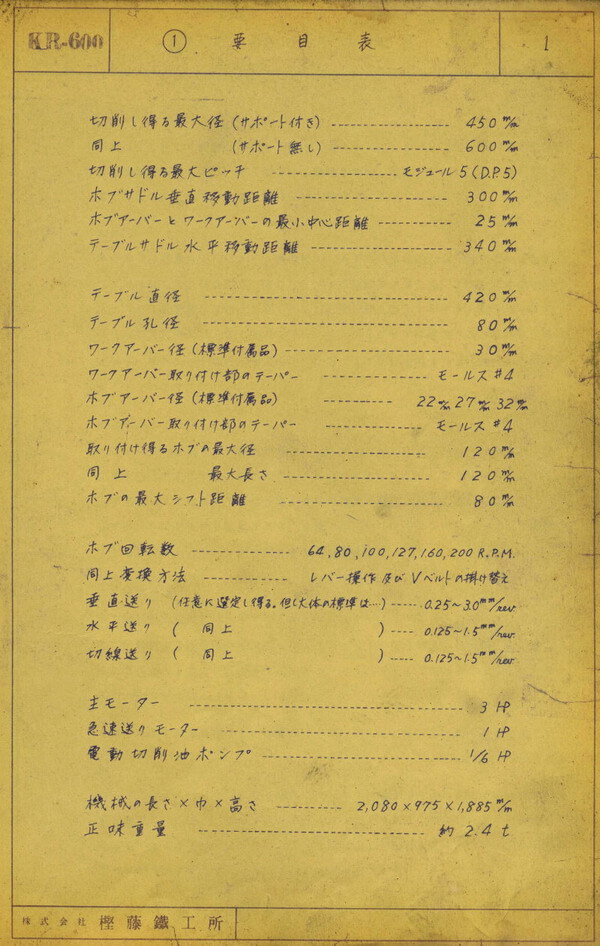 KR-600 ① 要目表 1
切削し得る最大径 (サポート付き) 450 m/m
同上 (サポート無し) 600 m/m
切削し得る最大ピッチ モジュール5 (D.P.5)
ホブサドル垂直移動距離 300 m/m
ホブアーバーとワークアーバーの最小中心距離 25 m/m
テーブルサドル水平移動距離 340 m/m
テーブル直径 420 m/m
テーブル孔径 80 m/m
ワークアーバー径 (標準付属品) 30 m/m
ワークアーバー取り付け部のテーパー モールス #4
ホブアーバー径 (標準付属品) 22 m/m 27 m/m 32 m/m
ホブアーバー取り付け部のテーパー モールス #4
取り付け得るホブの最大径 120 m/m
同上 最大長さ 120 m/m
ホブの最大シフト距離 80 m/m
ホブ回転数 64, 80, 100, 127, 160, 200 R.P.M.
同上変換方法 レバー操作及びVベルトの掛け替え
垂直送り (任意に選定し得る。但し大体の標準は…) 0.25~3.0 mm/rev
水平送り ( 同上 ) 0.125~1.5 mm/rev.
切線送り ( 同上 ) 0.125~1.5 mm/rev.
主モーター 3 HP
急速送りモーター 1 HP
電動切削油ポンプ 1/6 HP
機械の長さ×巾×高さ 2,080×975×1,885 m/m
正味重量 約 2.4 t
株式会社 樫藤鐵工所